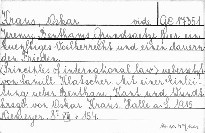 Kraus, Oskar vide QE 17351
Jeremy Benthams Grundsätze für ein
künftiges Völkerrecht und einen dauern-
den Frieden.
(Principles of international law) übersetzt
von Camill Klatscher. Mit einer Einlei-
tung über Bentham, Kant und Wundt
von Oskar Kraus. Halle a. S. 1915